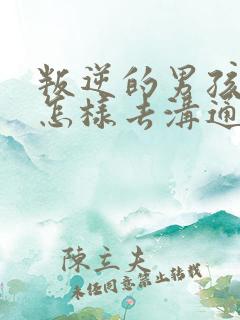 叛逆的男孩
怎樣去溝通
陳立夫
未经同意禁止转载